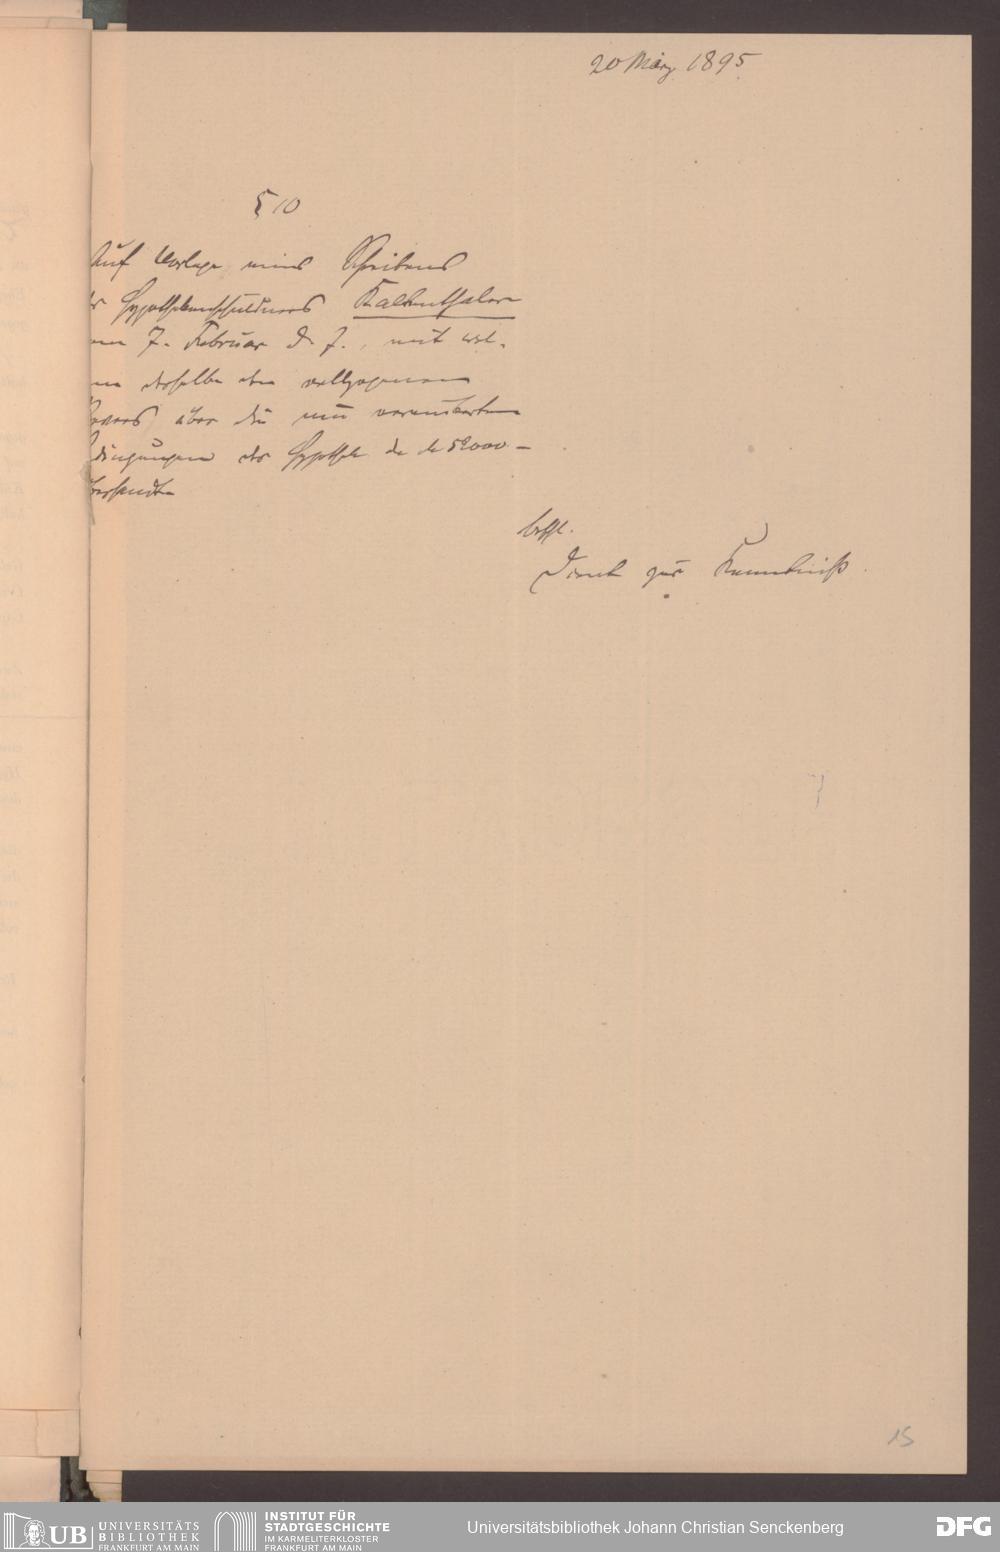 20 März 1895
§ 10
Auf Vorlage eines Schreibens
Hypothekenschuldners Kalkenthaler
7. Februar d. J., mit wel-
derselbe den vollzogenen
Revers über die neu vereinbarten
dingungen der Hypothek de M 52000 –
übersandte
betfl.
Dient zur Kenntniß.
15
UB UNIVERSITÄTS
BIBLIOTHEK
FRANKFURT AM MAIN
INSTITUT FÜR
STADTGESCHICHTE
IM KARMELITERKLOSTER
FRANKFURT AM MAIN
Universitätsbibliothek Johann Christian Senckenberg
DFG